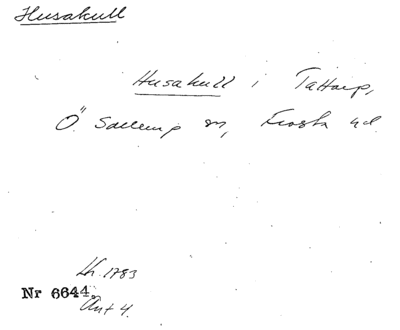 Husakull
Husakull i Tattarp,
Ö Sallerup sn, Frosta hd
Lh. 1783
Nr 6644.
Ant 4.